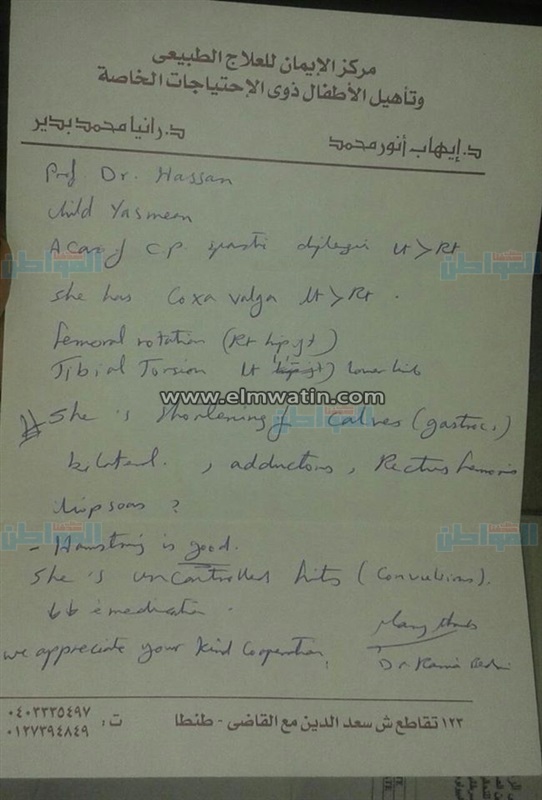 مركز الإيمان للعلاج الطبيعى
وتأهيل الأطفال ذوى الإحتياجات الخاصة
د. إيهاب أنور محمد
د. رانيا محمد بدير
Prof Dr. Hassan
child Yasmeen
A Case of C.P. spastic diplegia Lt > Rt
she has Coxa valga Lt > Rt.
femoral rotation (Rt hip jt)
Tibial Torsion Lt lower limb
www.elmwatin.com
# She is shortening of calves (gastroc.)
bilateral. , adductors , Rectus femoris
iliopsoas ?
- Hamstring is good.
She is uncontrolled fits (Convulsions).
medication.
Many thanks
we appreciate your kind Cooperation,
Dr. Rania
١٢٣ تقاطع ش سعد الدين مع القاضى - طنطا
ت: ٠٤٠٣٣٣٥٤٩٧
٠١٢٧٣٩٤٨٤٩
كلنا المواطن